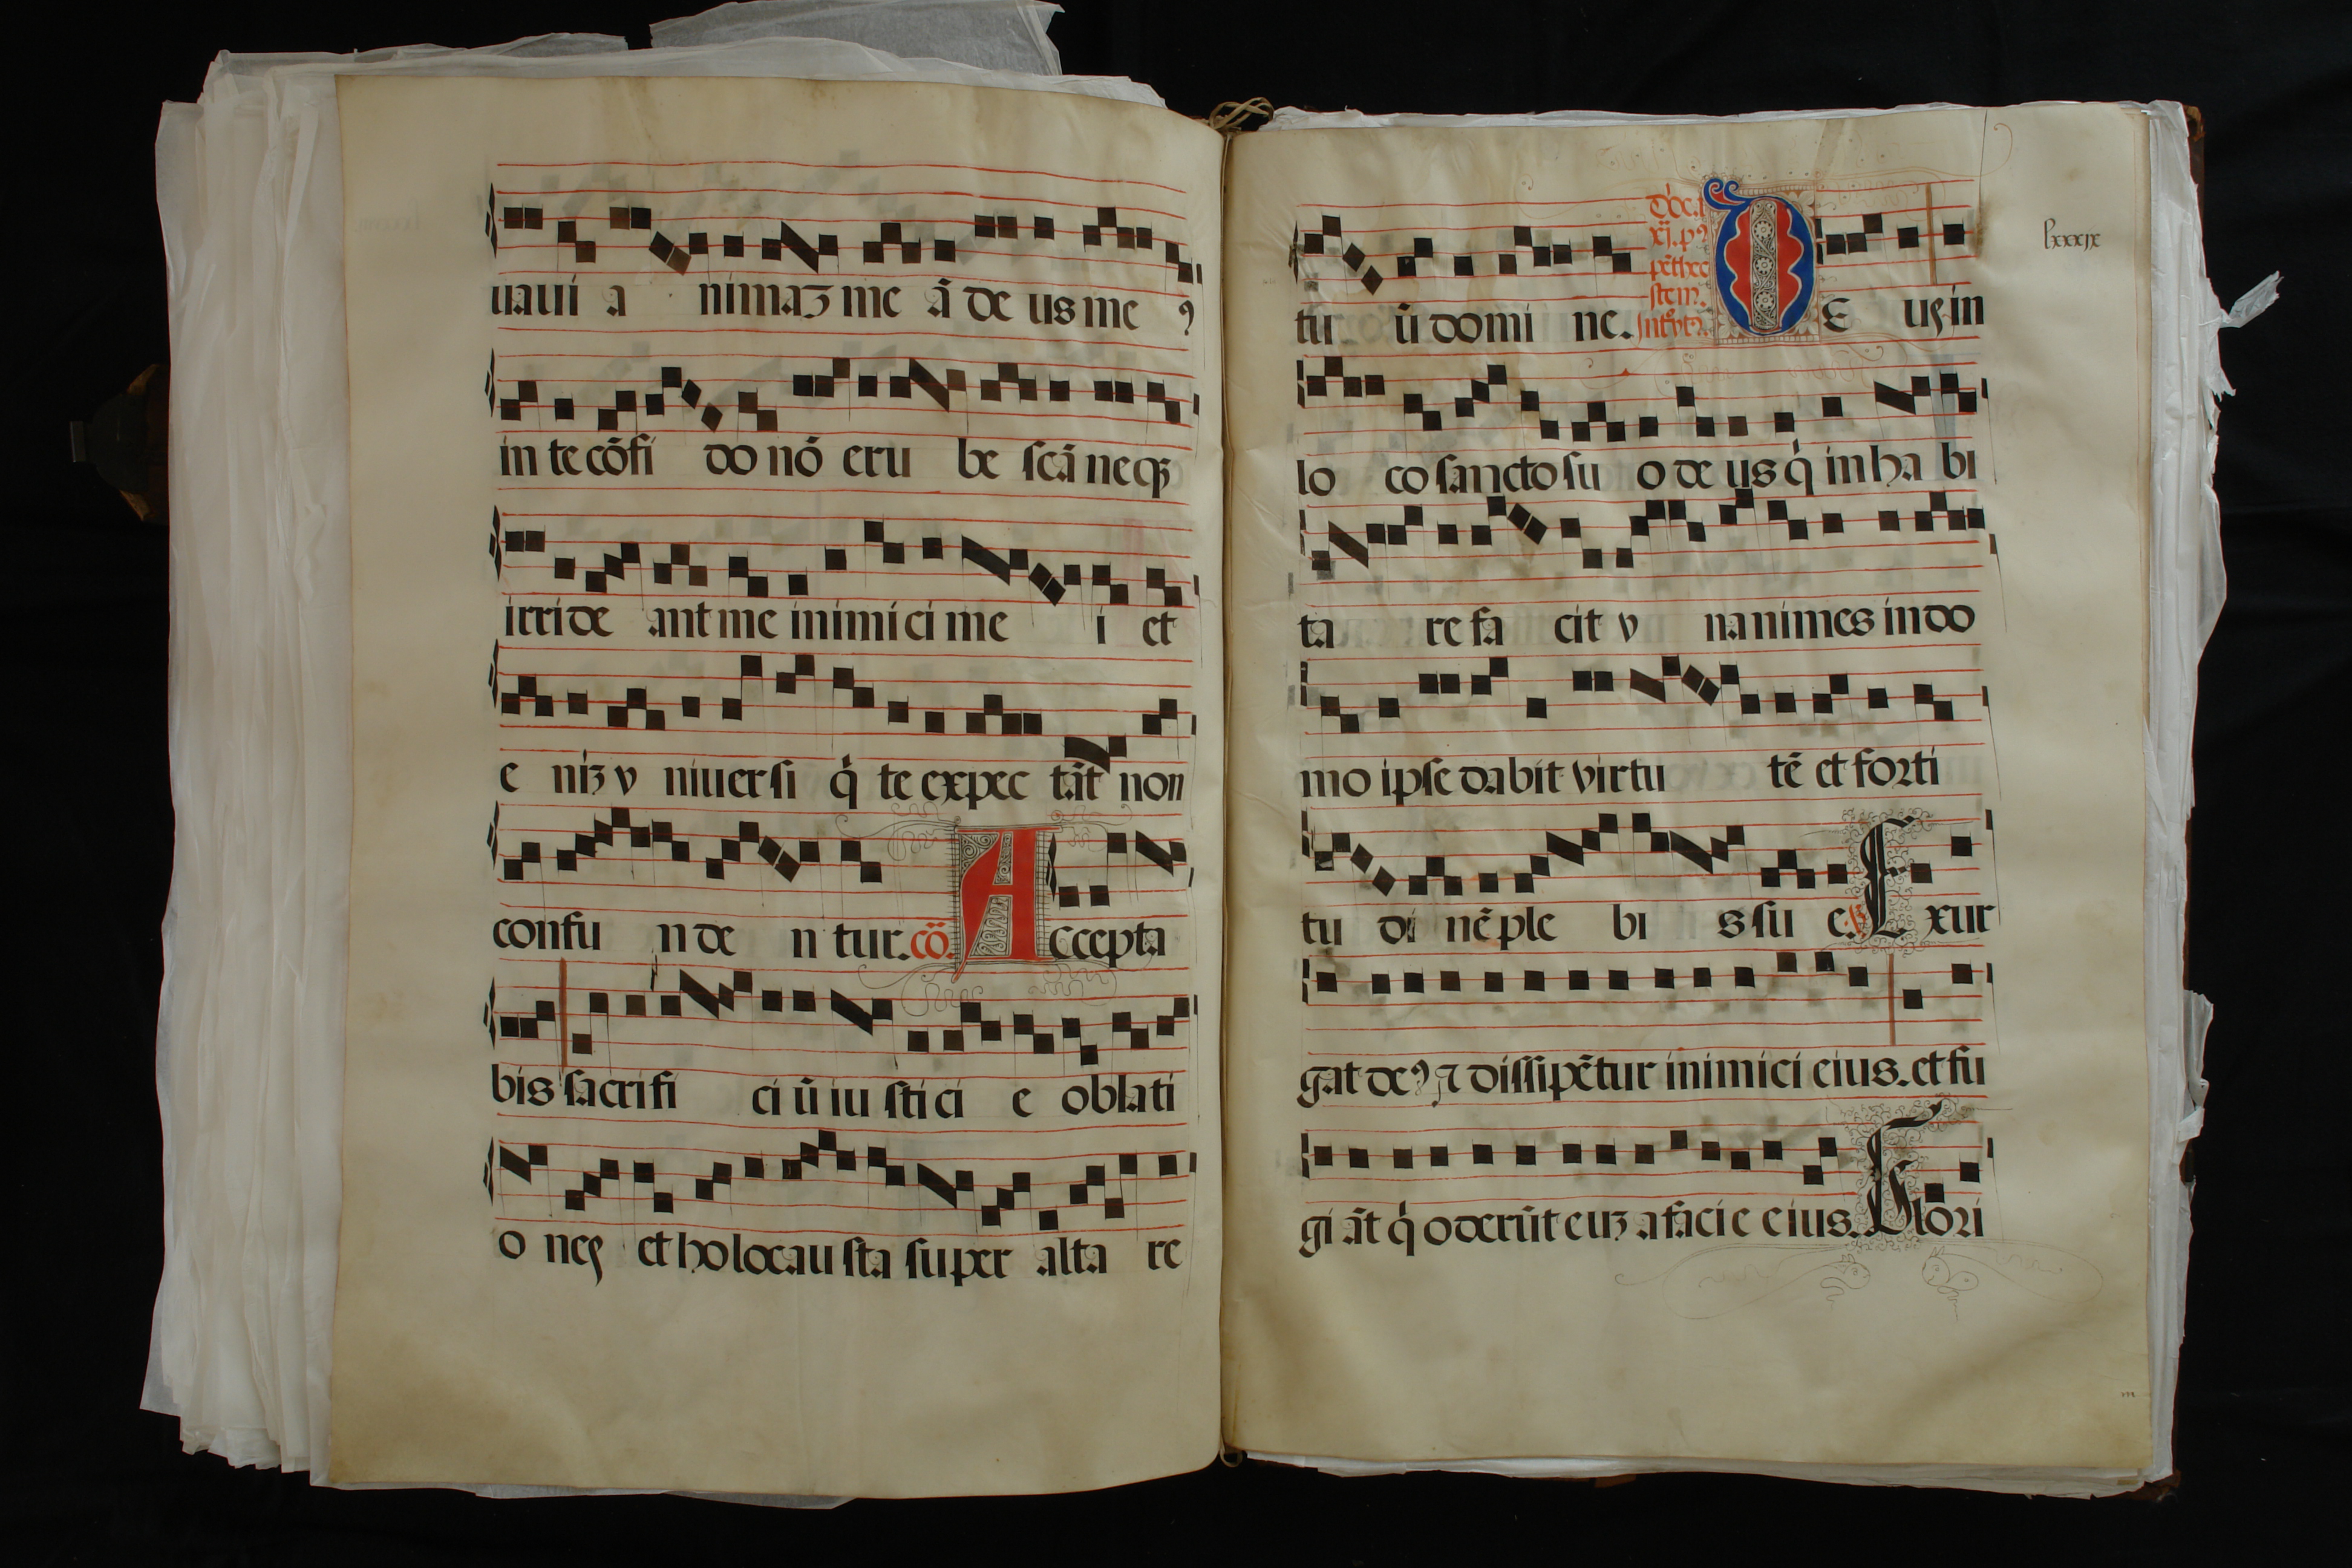 uaui a nimaʒ me ā de us me ꝯ
in te cōfi do nō eru be scā neqʒ
irride ant me inimi ci me i et
e niʒ v niuer si q̇ te expec tāt non
confu n de n tur. cō. A ccepta
bis sacrifi ci ū iu sti ci e oblati
o nes et holocau sta super alta re
lxxxix
tur ū domi ne. Dōc. xj. pꝯ pēthec stem. Introytꝯ. D e us in
lo co sancto su o de us q̇ in ha bi
ta re fa cit v nanimes in do
mo ipse dabit virtu tē et forti
tu di nē ple bi s su e. E xur
gat deꝯ ⁊ dissipētur inimici eius. et fu
gi āt q̇ oderūt euʒ a facie eius. Glori